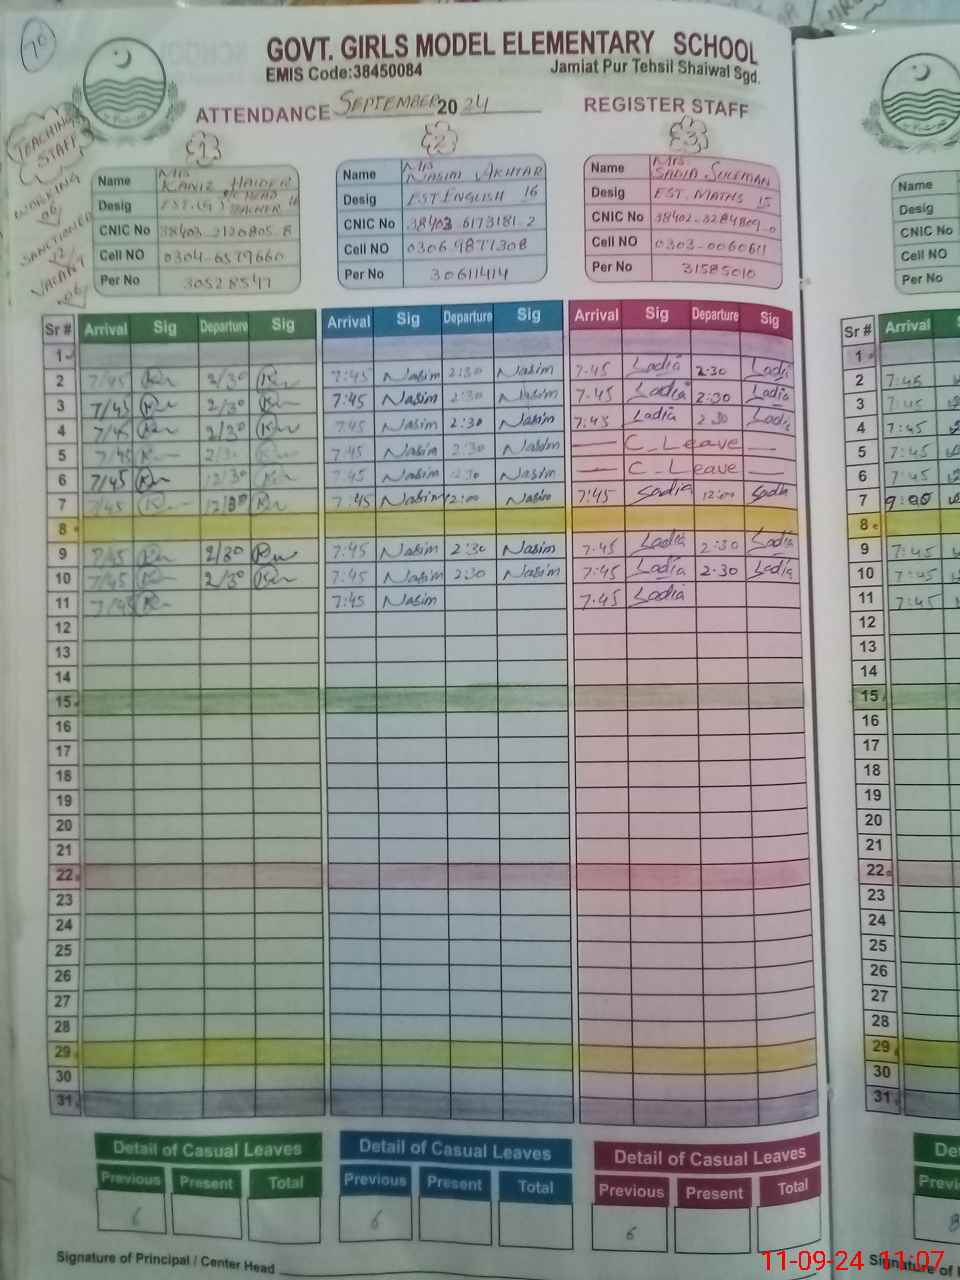 70
GOVT. GIRLS MODEL ELEMENTARY SCHOOL
EMIS Code:38450084 Jamiat Pur Tehsil Shaiwal Sgd.
ATTENDANCE SEPTEMBER 2024 REGISTER STAFF
TEACHING STAFF
WORKING 06
SANCTIONED 12
VACANT 06
1 2 3
Name Mrs Kaniz Haider
Desig EST.(G) HEAD TEACHER
CNIC No 38403-2120805-8
Cell NO 0304-6579660
Per No 30528547
Name Mrs Nasim Akhtar
Desig EST English 16
CNIC No 38403-6173181-2
Cell NO 0306-9877308
Per No 30611414
Name Mrs. Sadia Suleman
Desig EST. MATHS 15
CNIC No 38402-3284809-0
Cell NO 0303-0060611
Per No 31585010
Name
Desig
CNIC No
Cell NO
Per No
Sr # Arrival Sig Departure Sig Arrival Sig Departure Sig Arrival Sig Departure Sig Sr # Arrival
1 1
2 7/45 2/30 7:45 Nasim 2:30 Nasim 7-45 Sadia 2:30 Sadia 2 7:45
3 7/45 2/30 7:45 Nasim 2:30 Nasim 7-45 Sadia 2:30 Sadia 3 7:45
4 7/45 2/30 7:45 Nasim 2:30 Nasim 7:45 Sadia 2:30 Sadia 4 7:45
5 7/45 2/30 7:45 Nasim 2:30 Nasim — C_Leave — 5 7:45
6 7/45 12/30 7:45 Nasim Nasim — C_Leave — 6 7:45
7 7/45 7:45 Nasim 12:00 Nasim 7:45 Sadia 12:00 Sadia 7 9:00
8 8
9 7/45 2/30 7:45 Nasim 2:30 Nasim 7-45 Sadia 2:30 Sadia 9 7:45
10 7/45 2/30 7:45 Nasim 2:30 Nasim 7:45 Sadia 2:30 Sadia 10 7:45
11 7/45 7:45 Nasim 7.45 Sadia 11 7:45
12 12
13 13
14 14
15 15
16 16
17 17
18 18
19 19
20 20
21 21
22 22
23 23
24 24
25 25
26 26
27 27
28 28
29 29
30 30
31 31
Detail of Casual Leaves Detail of Casual Leaves Detail of Casual Leaves
Previous Present Total Previous Present Total Previous Present Total
6 6 6 8
Signature of Principal / Center Head
11-09-24 11:07